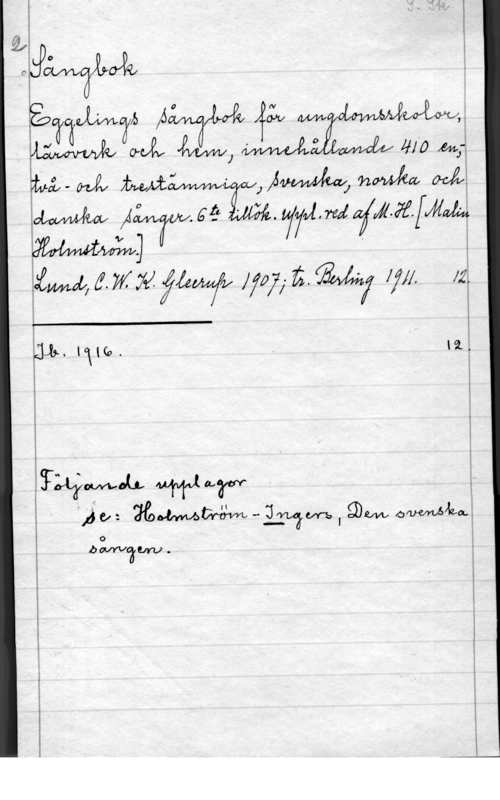 2
Sångbok
Eggelings sångbok för ungdomsskolor,
läroverk och hem, innehållande 410 en-,
två- och trestämmiga, svenska, norska och
danska sånger. 6te tillök. uppl. red af M.H. [Malin
Holmström.]
Lund, C.W.K. Gleerup 1907; tr. Berling 1911. 12.
Ib. 1916. 12.
Följande upplagor
se: Holmström-Ingers, Den svenska
sången.